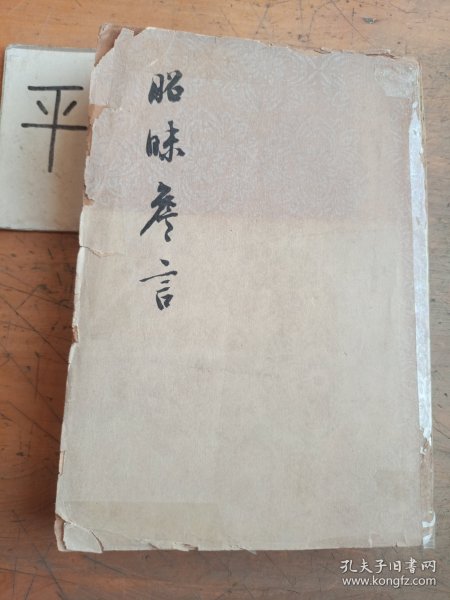 平
昭昧詹言
孔夫子旧书网
www.kongfz.com